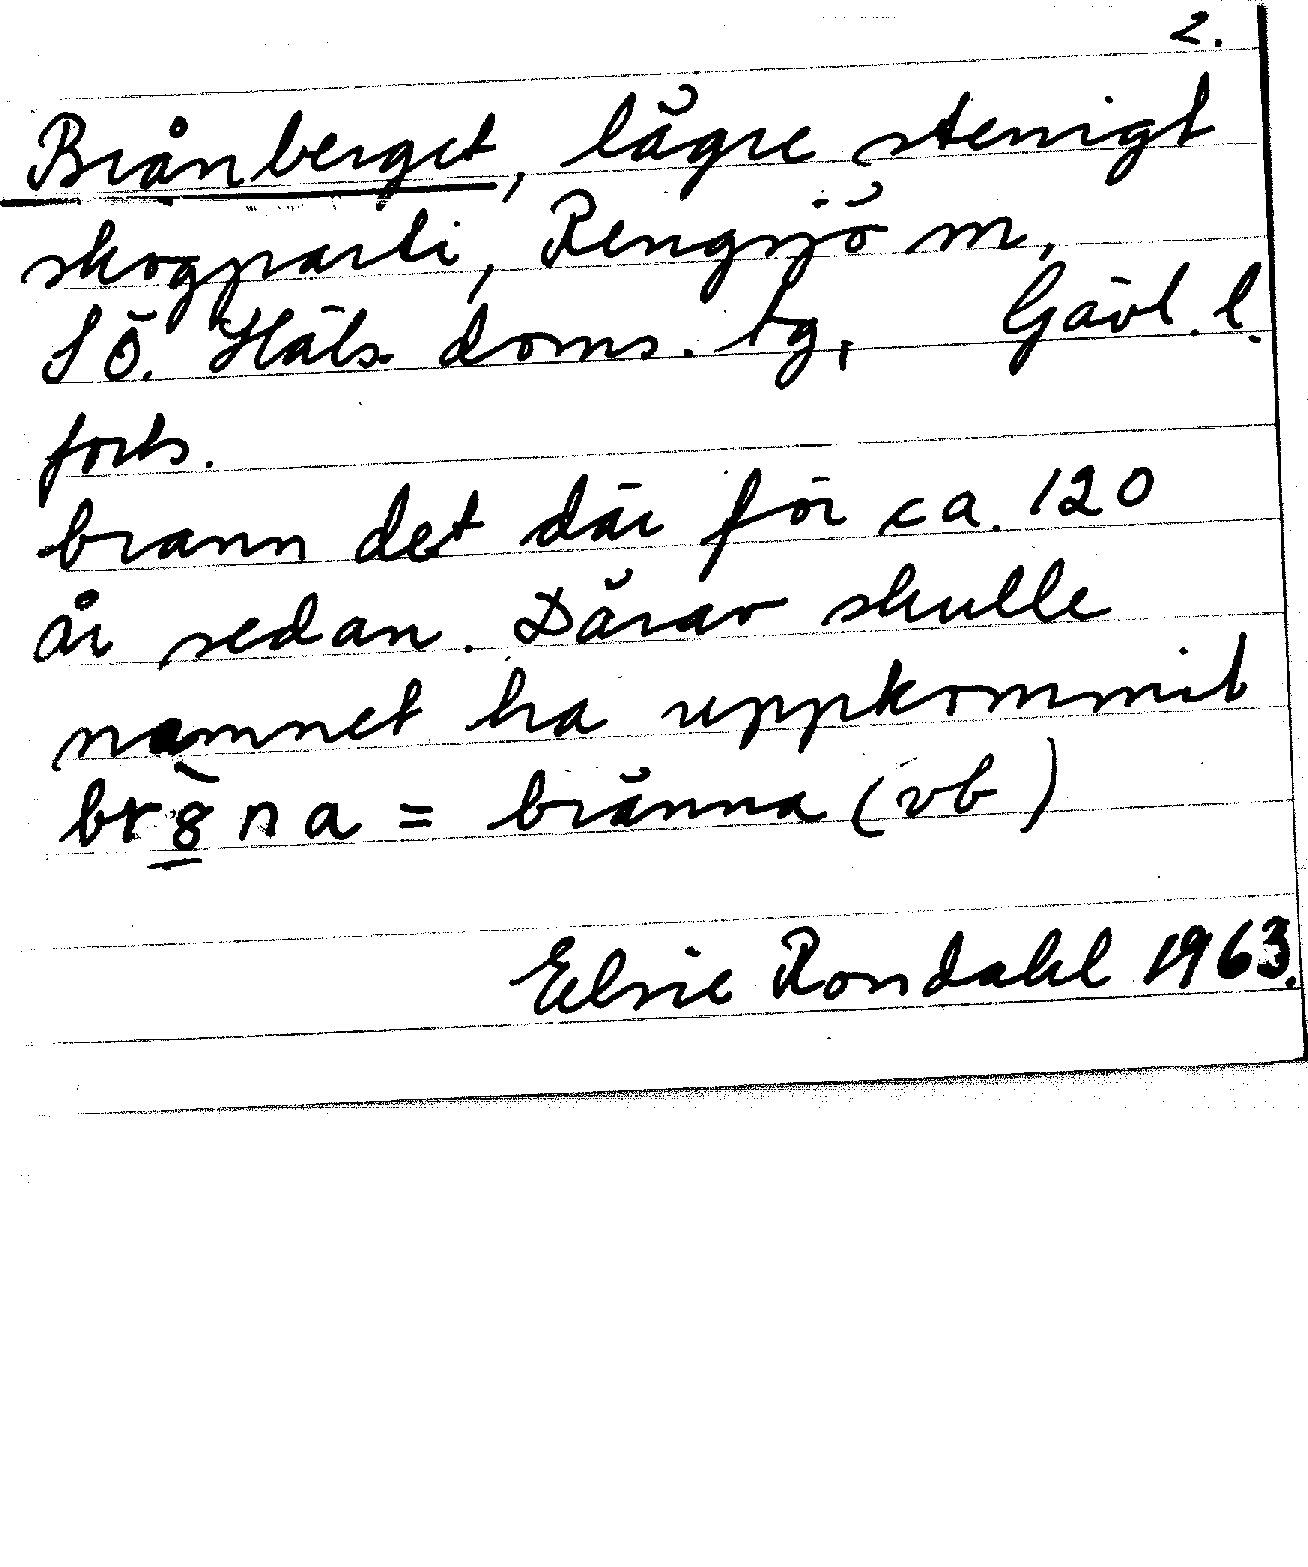 2.
Brånberget, lägre stenigt
skogparti, Rengsjö m,
SÖ. Häls. doms. tg, Gävl. l.
forts.
brann det där för ca. 120
år sedan. Därav skulle
namnet ha uppkommit
na = bränna (vb)
Elsie Rondahl 1963.